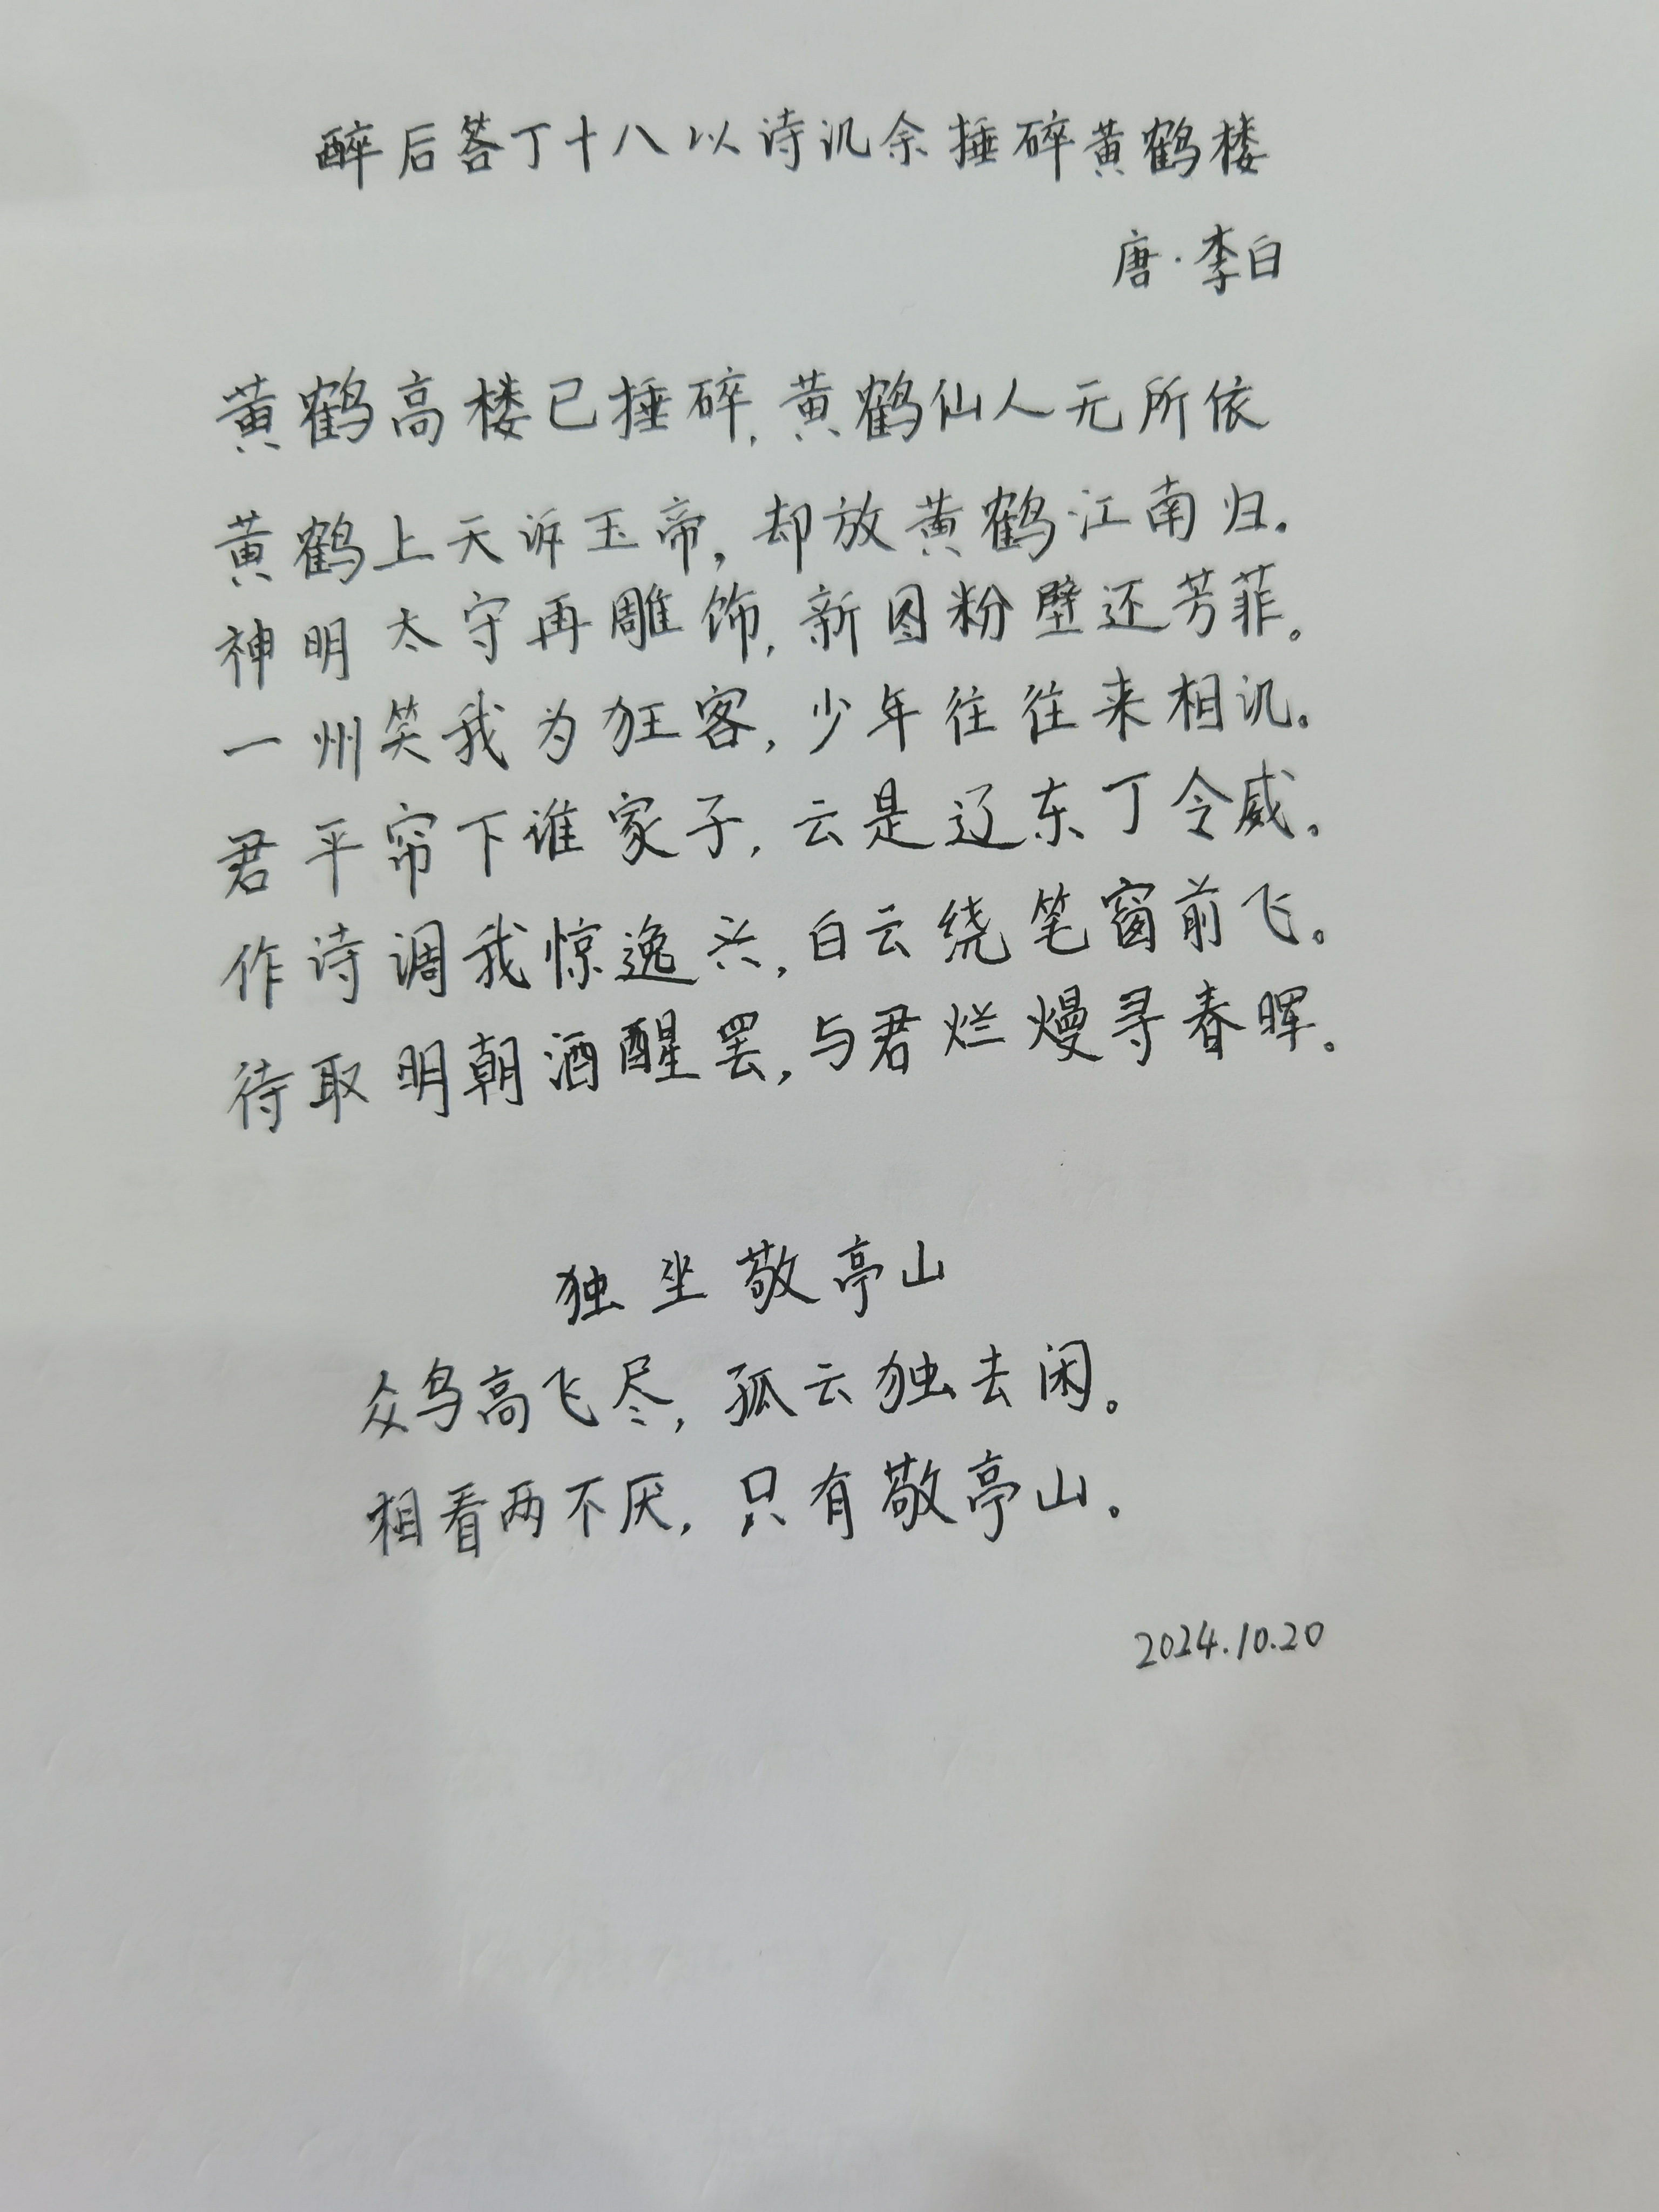 醉后答丁十八以诗讥余捶碎黄鹤楼
唐·李白
黄鹤高楼已捶碎,黄鹤仙人无所依
黄鹤上天诉玉帝,却放黄鹤江南归。
神明太守再雕饰,新图粉壁还芳菲。
一州笑我为狂客,少年往往来相讥。
君平帘下谁家子,云是辽东丁令威。
作诗调我惊逸兴,白云绕笔窗前飞。
待取明朝酒醒罢,与君烂熳寻春晖。
独坐敬亭山
众鸟高飞尽,孤云独去闲。
相看两不厌,只有敬亭山。
2024.10.20